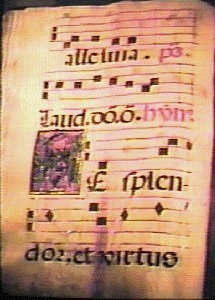 alleluia. pō.
Laud. dō. ō. hȳm.
TE splen-
dor, et virtus